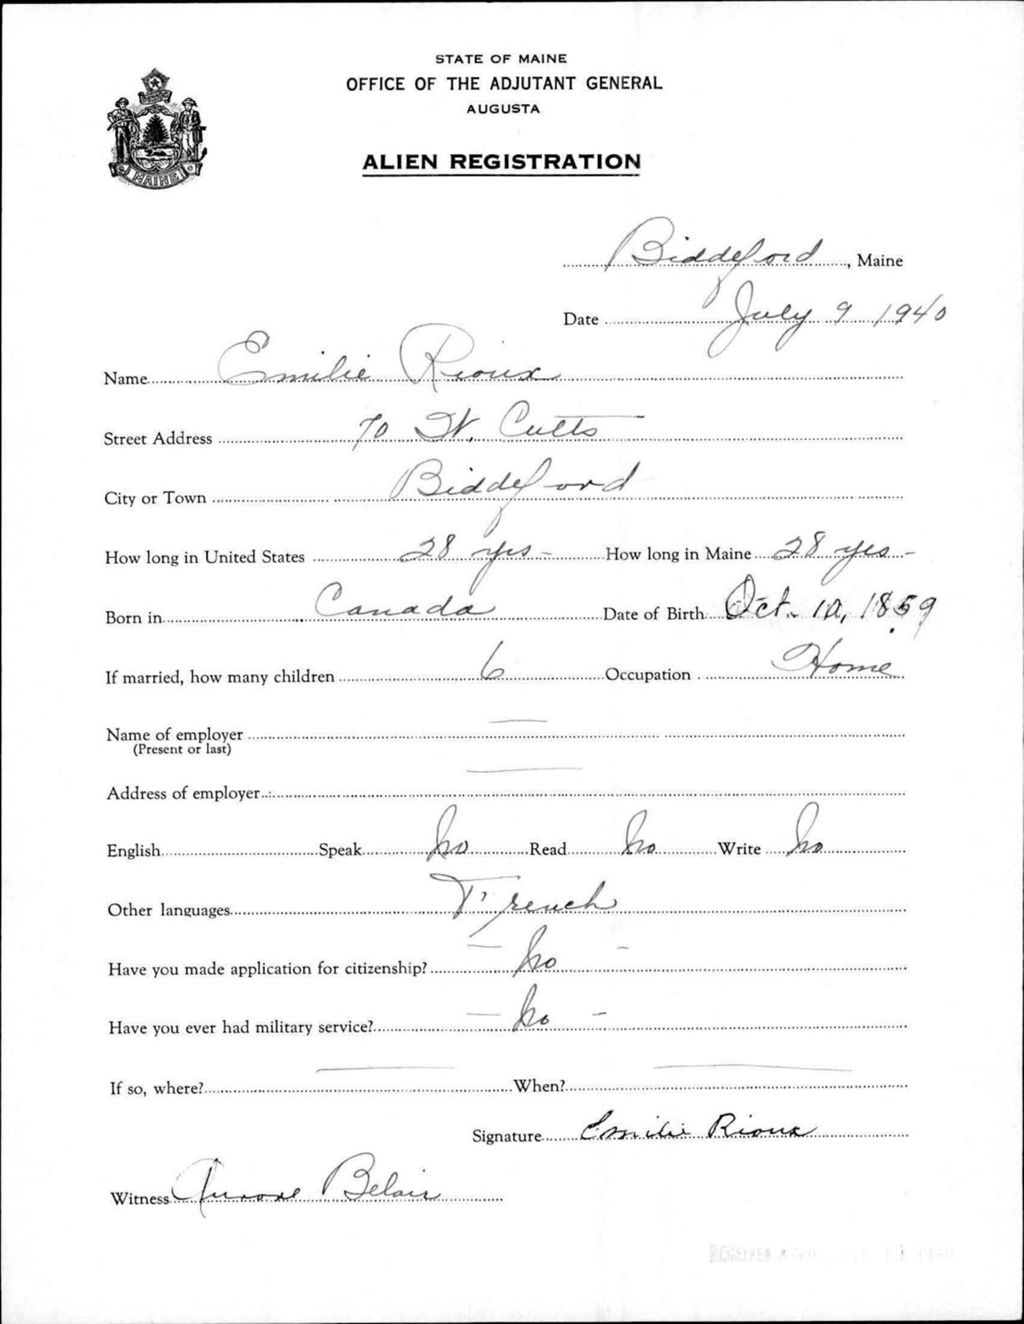 STATE OF MAINE
OFFICE OF THE ADJUTANT GENERAL
AUGUSTA
ALIEN REGISTRATION
MAINE
Biddeford, Maine
Date July 9 1940
Name Emilie Rioux
Street Address 70 St. Cutts
City or Town Biddeford
How long in United States 28 yrs - How long in Maine 28 yrs -
Born in Canada Date of Birth Oct. 10, 1859
If married, how many children 6 Occupation Home
Name of employer —
(Present or last)
Address of employer —
English Speak No Read No Write No
Other languages French
Have you made application for citizenship? — No -
Have you ever had military service? — No -
If so, where? — When? —
Signature Emilie Rioux
Witness Aurore Belair
RECEIVED